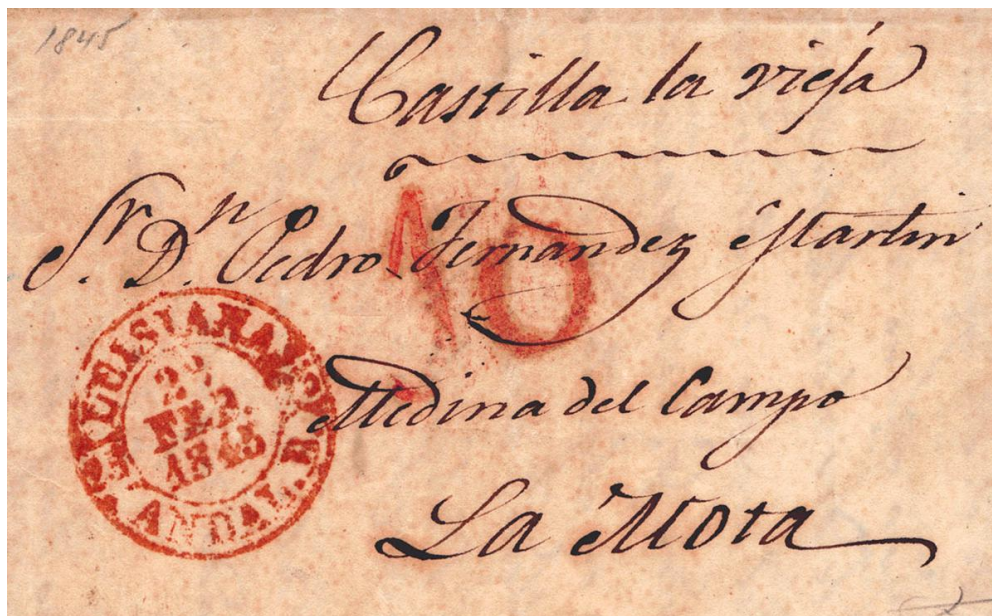 1845
Castilla la vieja
Sr. Dn. Pedro Fernandez Martin
10
Medina del Campo
La Mota
LUISIANA
FEB.
1845
ANDAL.